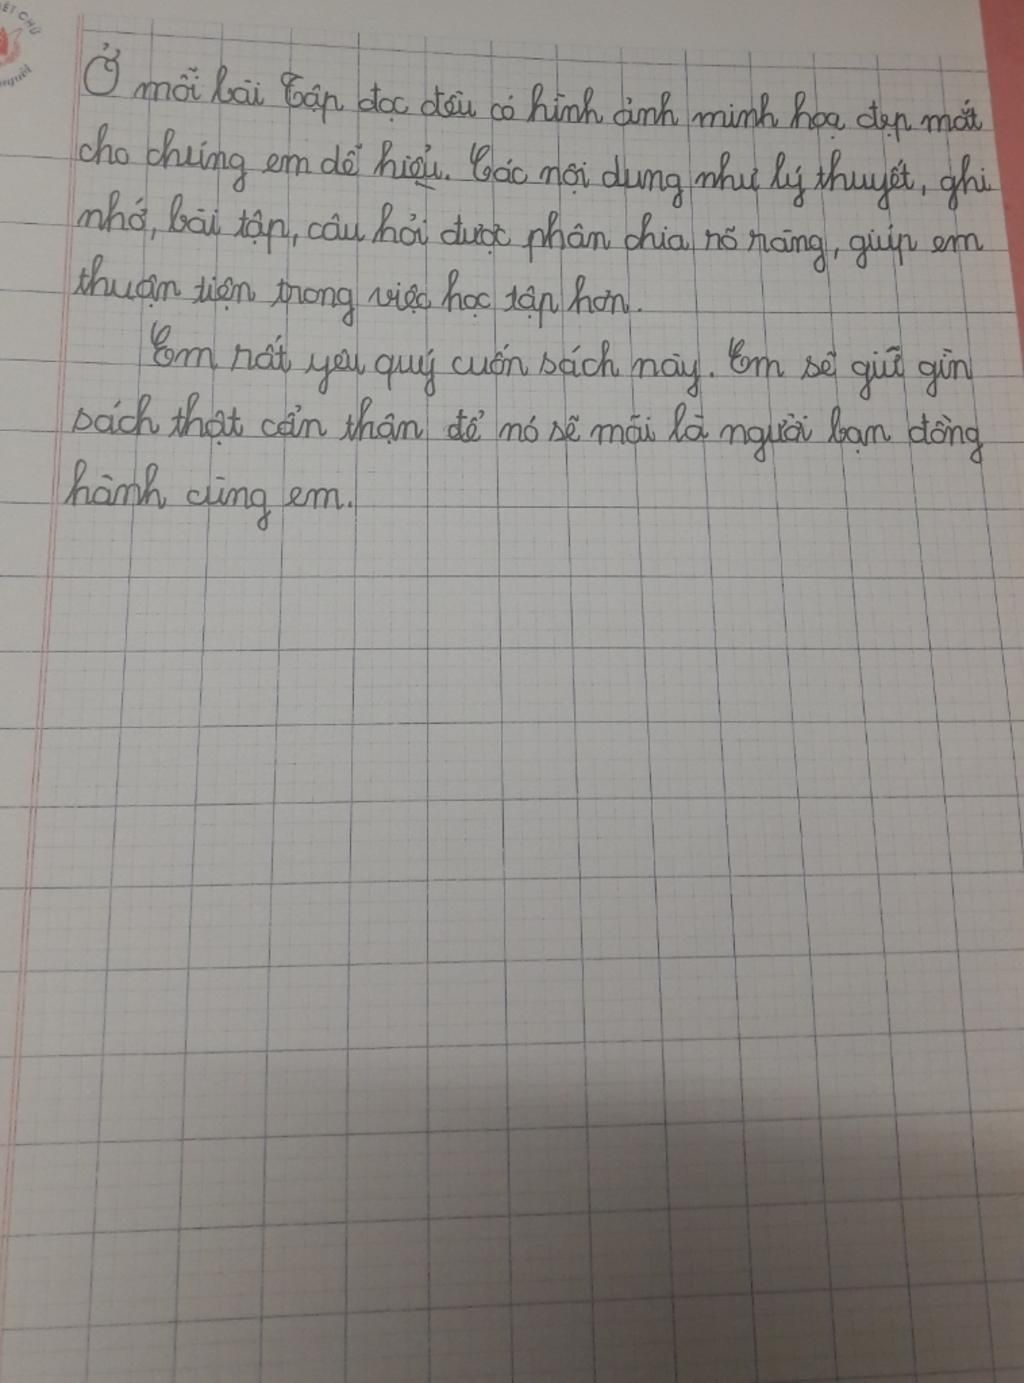 ẾT CHỮ
người
Ở mỗi bài Tập đọc đều có hình ảnh minh họa đẹp mắt
cho chúng em dễ hiểu. Các nội dung như lý thuyết, ghi
nhớ, bài tập, câu hỏi được phân chia rõ ràng, giúp em
thuận tiện trong việc học tập hơn.
Em rất yêu quý cuốn sách này. Em sẽ giữ gìn
sách thật cẩn thận để nó sẽ mãi là người bạn đồng
hành cùng em.